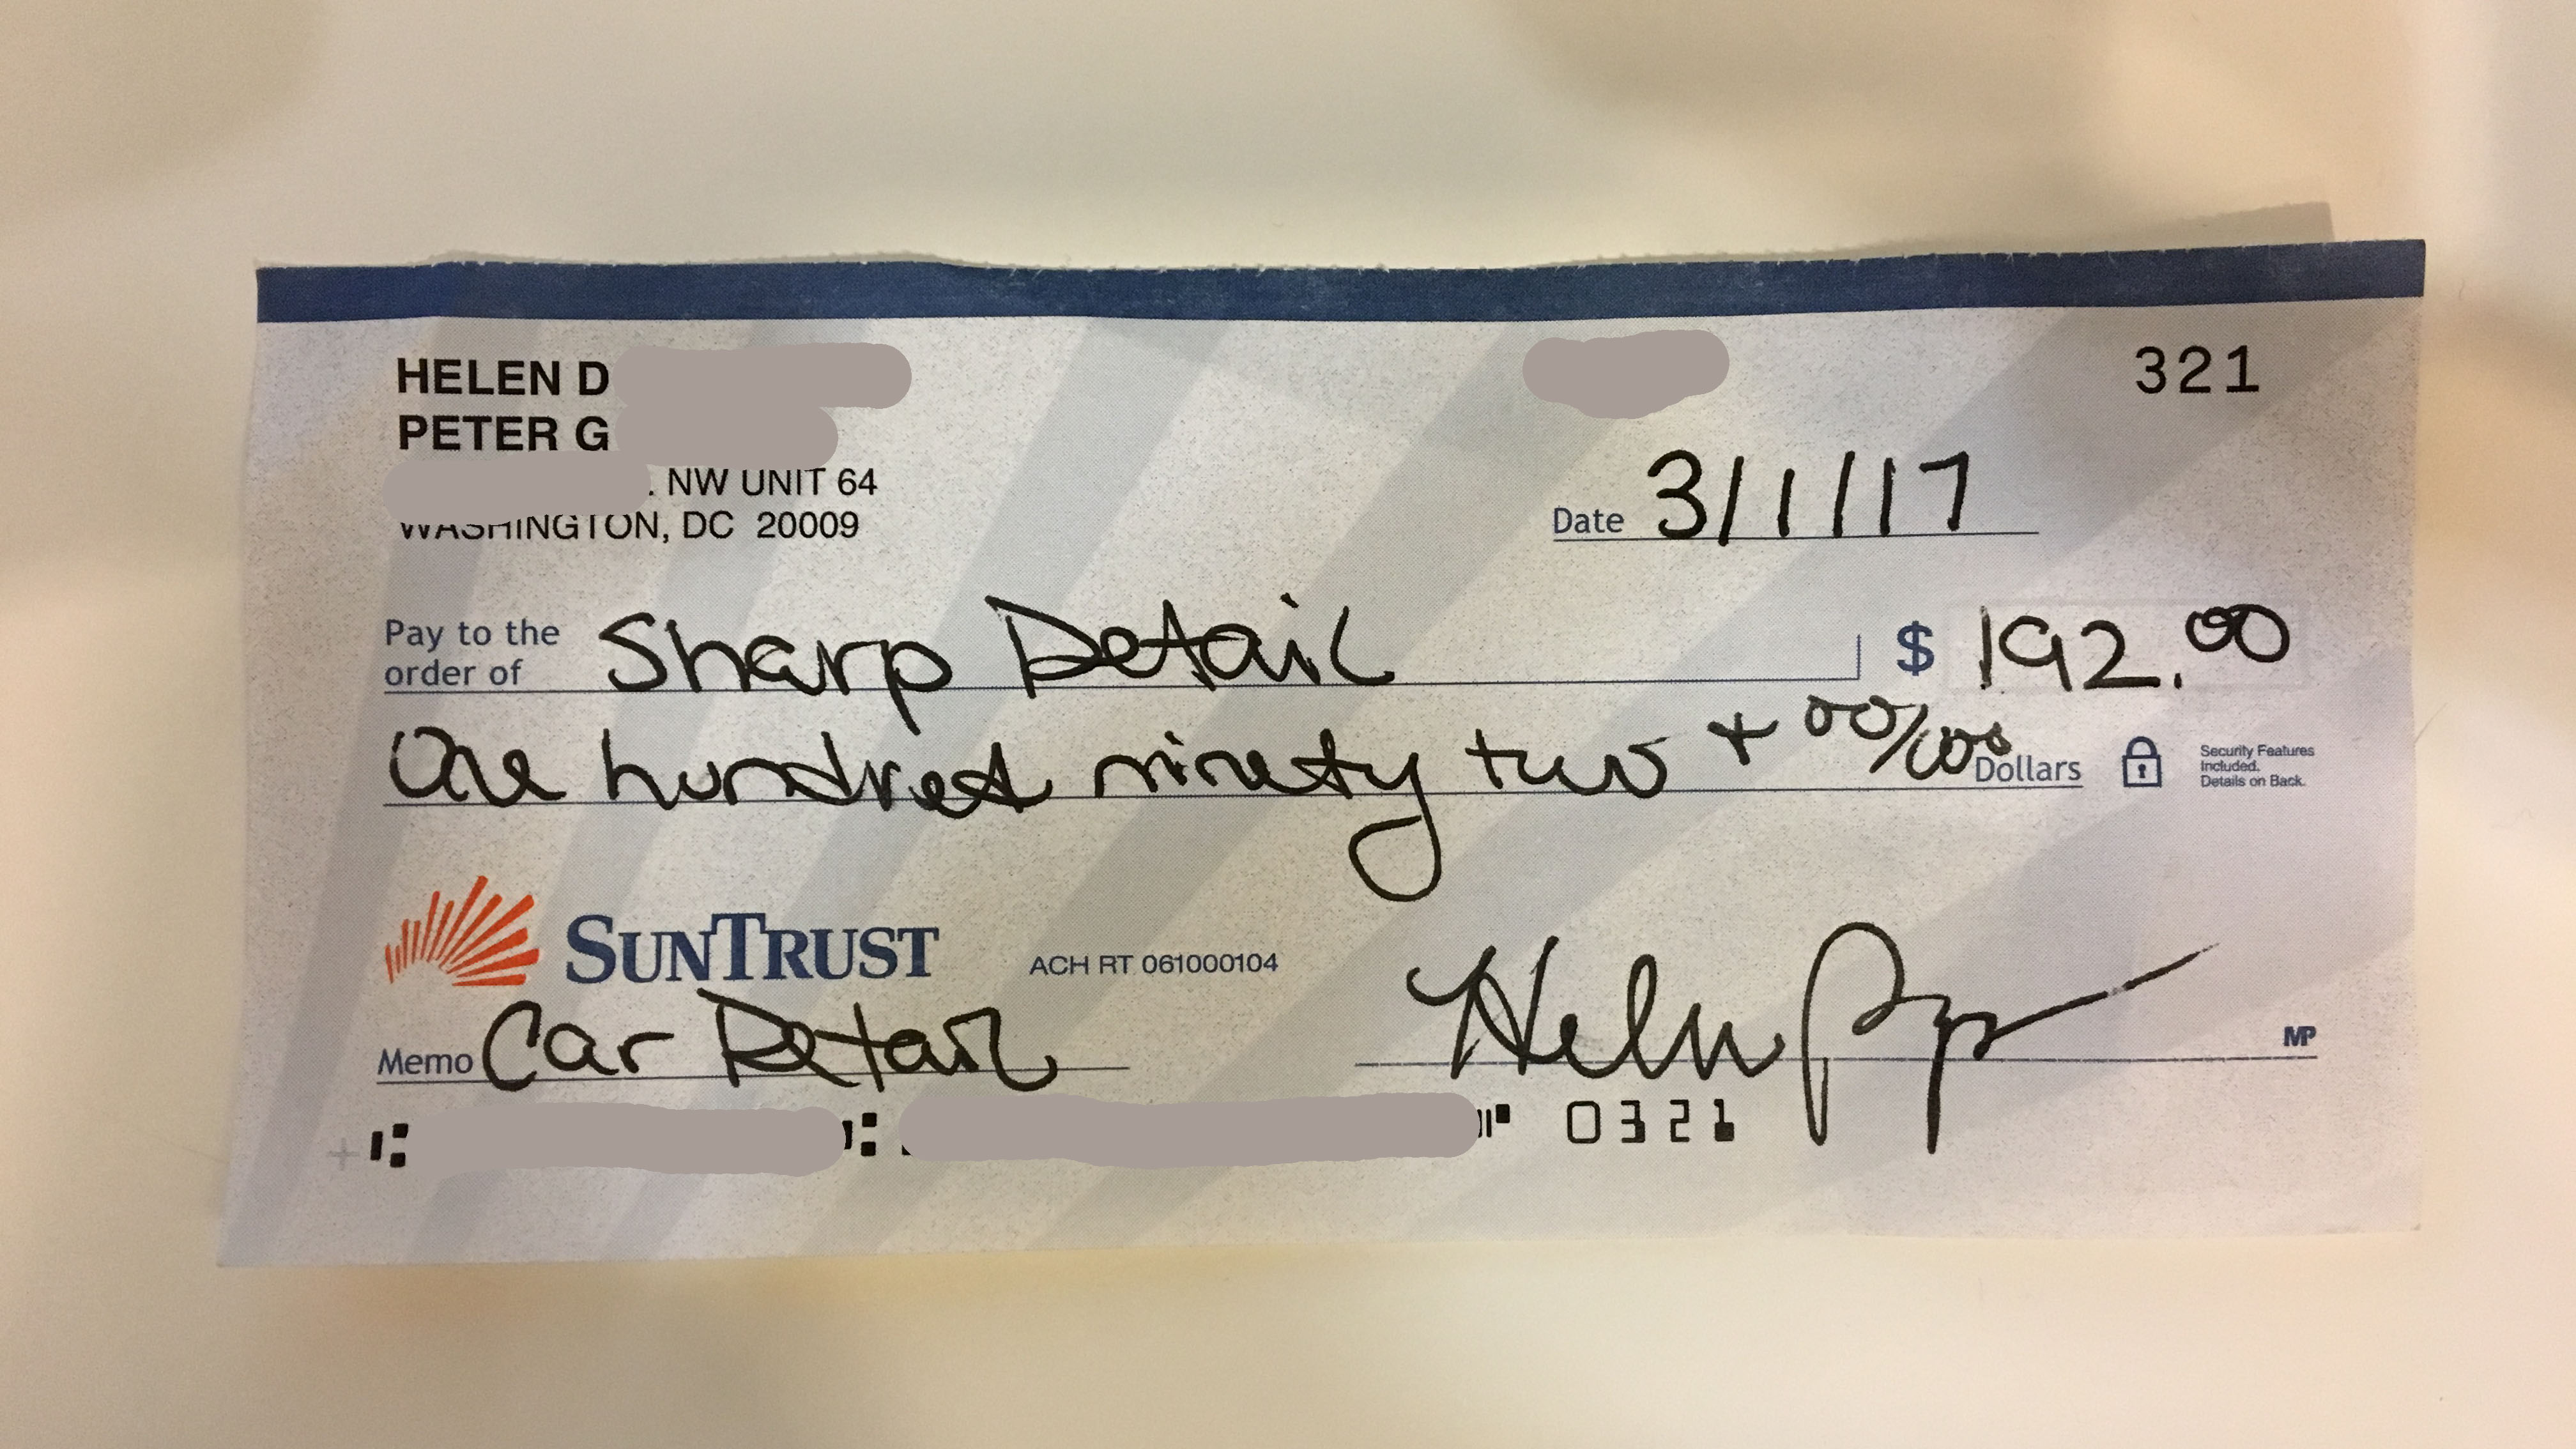 321
HELEN D
PETER G
. NW UNIT 64
WASHINGTON, DC 20009
Date 3/1/17
Pay to the order of Sharp Detail $ 192.00
One hundred ninety two + 00/100 Dollars
Security Features
Included.
Details on Back.
SUNTRUST
ACH RT 061000104
Memo Car Detail
Helen
MP
0321